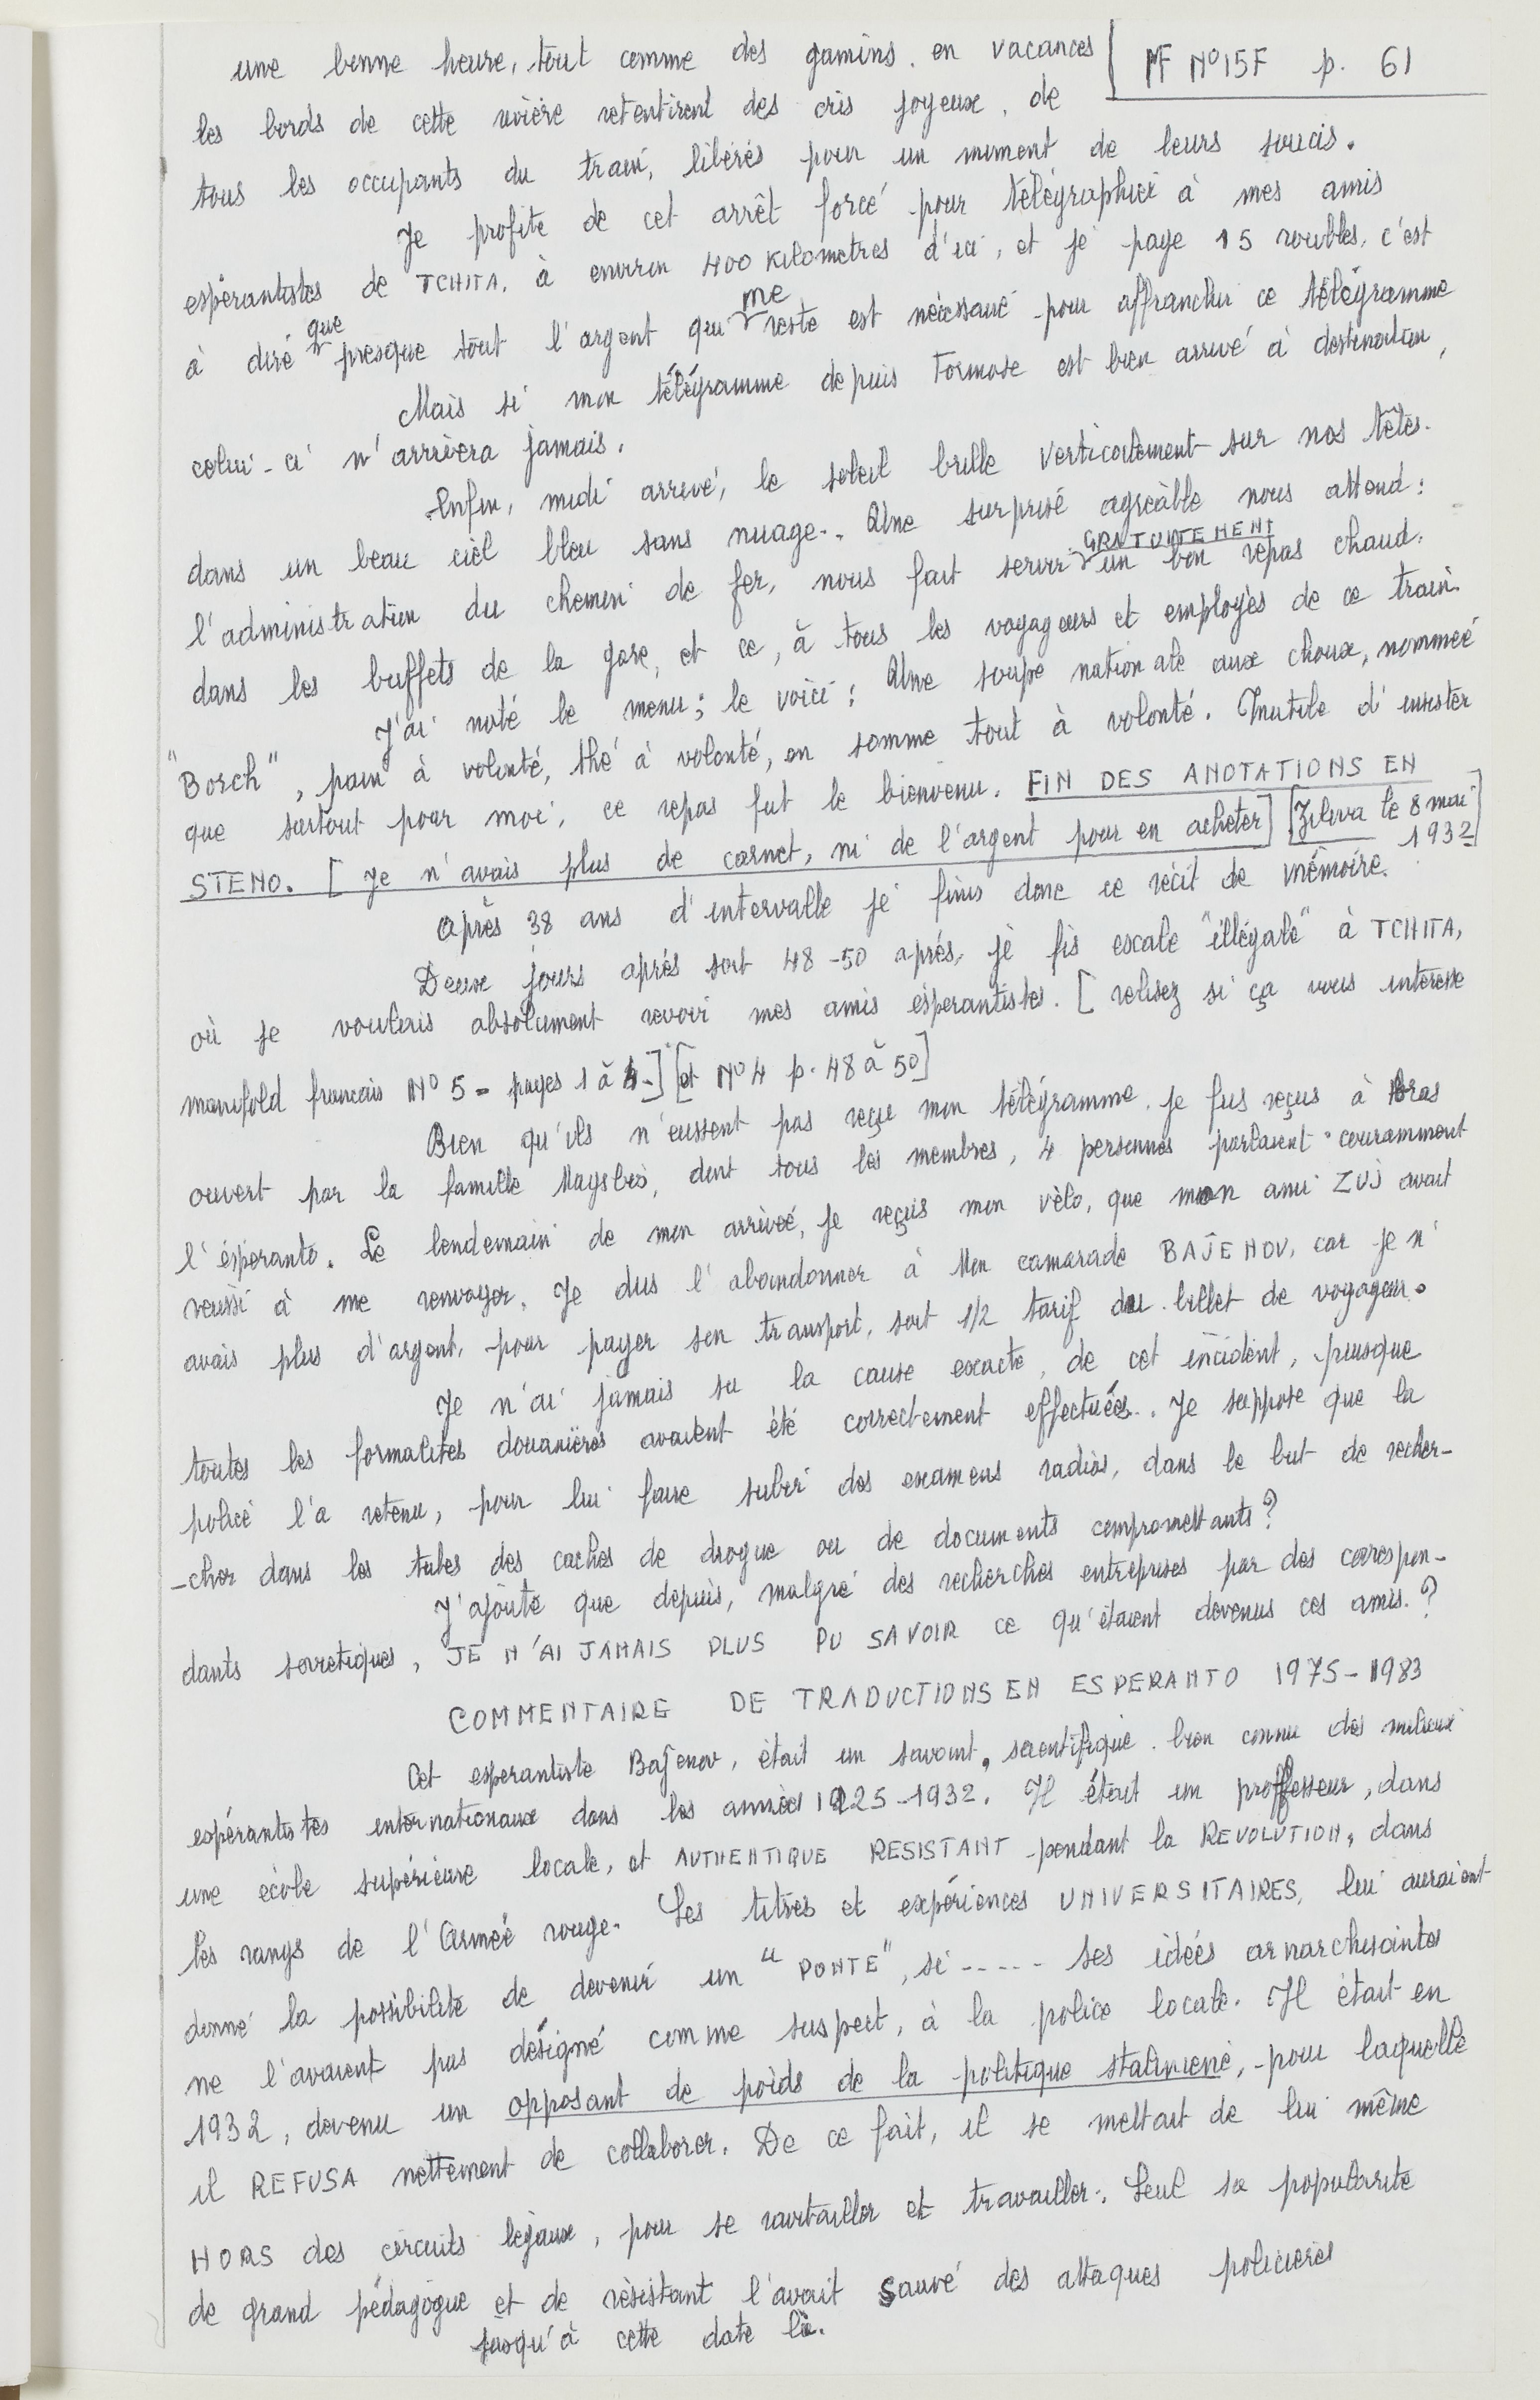 une bonne heure, tout comme des gamins en vacances
MF N°15F p. 61
les bords de cette rivière retentirent des cris joyeux, de
tous les occupants du train, libérés pour un moment de leurs soucis.
Je profite de cet arrêt forcé pour télégraphier à mes amis
espérantistes de TCHITA, à environ 400 kilomètres d'ici, et je paye 15 roubles, c'est
à dire que presque tout l'argent qui me reste est nécessaire pour affranchir ce télégramme
Mais si mon télégramme depuis Formose est bien arrivé à destination,
celui-ci n'arrivera jamais.
Enfin, midi arrivé, le soleil brille verticalement sur nos têtes.
dans un beau ciel bleu sans nuage. Une surprise agréable nous attend:
l'administration du chemin de fer, nous fait servir GRATUITEMENT un bon repas chaud.
dans les buffets de la gare, et ce, à tous les voyageurs et employés de ce train.
J'ai noté le menu; le voici: Une soupe nationale aux choux, nommée
"Borch", pain à volonté, thé à volonté, en somme tout à volonté. Inutile d'insister
que surtout pour moi, ce repas fut le bienvenu. FIN DES ANOTATIONS EN
STENO. [Je n'avais plus de carnet, ni de l'argent pour en acheter] [Zilova le 8 mai 1932]
Après 38 ans d'intervalle je finis donc ce récit de mémoire.
Deux jours après soit 48-50 après, je fis escale "illégale" à TCHITA,
où je voulais absolument revoir mes amis espérantistes. [relisez si ça vous intéresse
manifold francais N° 5 = pages 1 à 4-] [et N° 4 p. 48 à 50]
Bien qu'ils n'eussent pas reçu mon télégramme. je fus reçus à bras
ouvert par la famille Mayslès, dont tous les membres, 4 personnes parlaient couramment
l'espéranto. Le lendemain de mon arrivée, je reçus mon vélo, que mon ami ZUJ avait
reussi à me renvoyer. Je dus l'abandonner à Mon camarade BAĴENOV, car je n'
avais plus d'argent, pour payer son transport, soit 1/2 tarif du billet de voyageur.
Je n'ai jamais su la cause exacte, de cet incident, puisque
toutes les formalités douanières avaient été correctement effectuées. Je suppose que la
police l'a retenu, pour lui faire subir des examens radios, dans le but de recher-
-cher dans les tubes des caches de drogue ou de documents compromettants?
J'ajoute que depuis, malgré des recherches entreprises par des correspon-
dants sovietiques, JE N'AI JAMAIS PLUS PU SAVOIR ce qu'étaient devenus ces amis.?
COMMENTAIRE DE TRADUCTIONS EN ESPERANTO 1975-1983
Cet esperantiste Baĵenov, était un savant, scientifique bien connu des milieux
espérantistes internationaux dans les années 1925-1932. Il était un proffesseur, dans
une école supérieure locale, et AUTHENTIQUE RESISTANT pendant la REVOLUTION, dans
les rangs de l'Armée rouge. Ses titres et expériences UNIVERSITAIRES, lui auraient
donné la possibilité de devenir un "PONTE", si ----- ses idées anarchisantes
ne l'avaient pas désigné comme suspect, à la police locale. Il était en
1932, devenu un opposant de poids de la politique stalinienne, pour laquelle
il REFUSA nettement de collaborer. De ce fait, il se mettait de lui même
HORS des circuits légaux, pour se ravitailler et travailler. Seul sa popularité
de grand pédagogue et de résistant l'avait sauvé des attaques policières
jusqu'à cette date là.